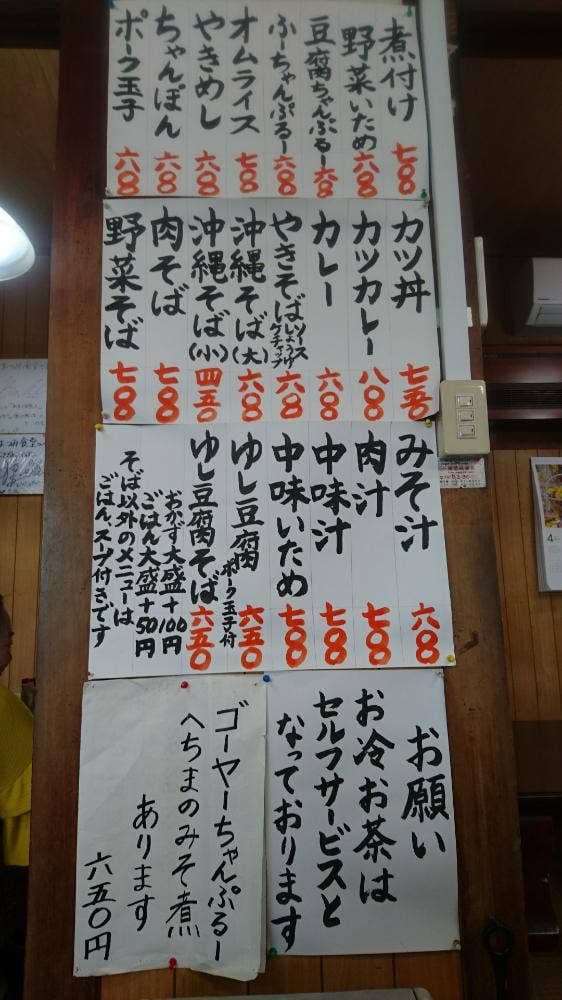 煮付け 七〇〇
野菜いため 六〇〇
豆腐ちゃんぷるー 六〇〇
ふーちゃんぷるー 六〇〇
オムライス 七〇〇
やきめし 六〇〇
ちゃんぽん 六〇〇
ポーク玉子 六〇〇
カツ丼 七五〇
カツカレー 八〇〇
カレー 六〇〇
やきそば ソース しょうゆ ケチャップ 六〇〇
沖縄そば(大) 六〇〇
沖縄そば(小) 四五〇
肉そば 七〇〇
野菜そば 七〇〇
みそ汁 六〇〇
肉汁 七〇〇
中味汁 七〇〇
中味いため 七〇〇
ゆし豆腐 ポーク玉子付 六五〇
ゆし豆腐そば 六五〇
おかず大盛+100円
ごはん大盛+50円
そば以外のメニューは
ごはん、スープ付きです
お願い
お冷お茶は
セルフサービスと
なっております
ゴーヤーちゃんぷるー
へちまのみそ煮
あります
六五〇円